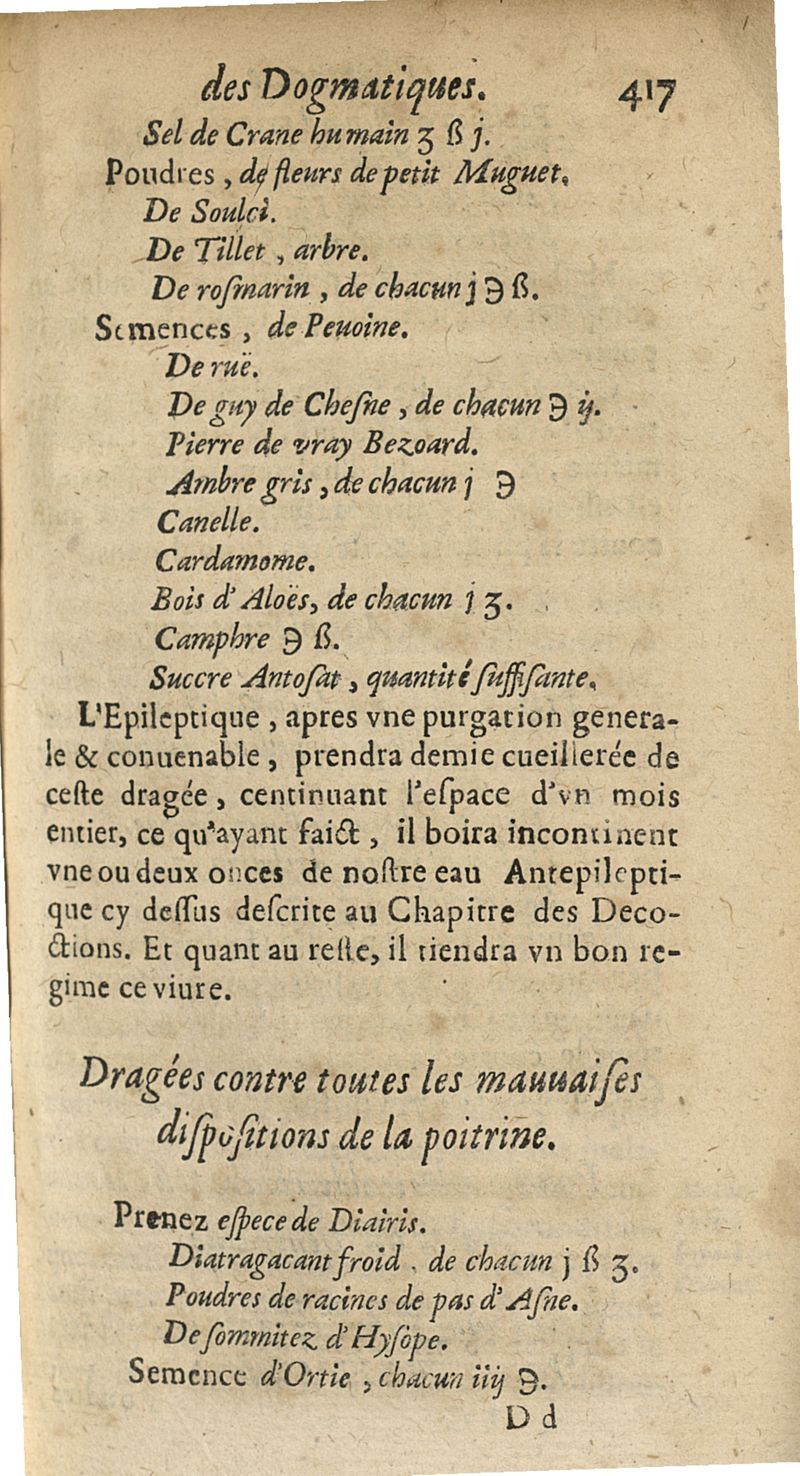 des Dogmatiques. 417
Sel de Crane humain ʒ ß j.
Poudres, de fleurs de petit Muguet.
De Soulci.
De Tillet, arbre.
De roſmarin, de chacun j ℈ ß.
Semences, de Peuoine.
De ruë.
De guy de Cheſne, de chacun ℈ ij.
Pierre de vray Bezoard.
Ambre gris, de chacun j ℈
Canelle.
Cardamome.
Bois d'Aloës, de chacun j ʒ.
Camphre ℈ ß.
Succre Antoſat, quantité ſuffiſante.
L'Epileptique, apres vne purgation genera-
le & conuenable, prendra demie cueillerée de
ceſte dragée, centinuant l'eſpace d'vn mois
entier, ce qu'ayant faict, il boira incontinent
vne ou deux onces de noſtre eau Antepilepti-
que cy deſſus deſcrite au Chapitre des Deco-
ctions. Et quant au reſte, il tiendra vn bon re-
gime ce viure.
Dragées contre toutes les mauuaiſes
diſpoſitions de la poitrine.
Prenez eſpece de Diairis.
Diatragacant froid, de chacun j ß ʒ.
Poudres de racines de pas d'Aſne.
De ſommitez d'Hyſope.
Semence d'Ortie, chacun iiij ℈.
D d